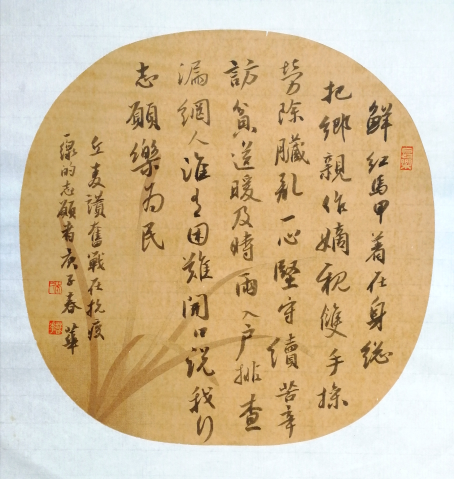 鲜红马甲着在身总
把鄉親作嫡親雙手操
勞除臟亂一心堅守續苦辛
訪貧送暖及時雨入户排查
漏網人誰有困難開口說我行
志願樂為民
立夏讃奮戰在抗疫
線的志願者庚子春華